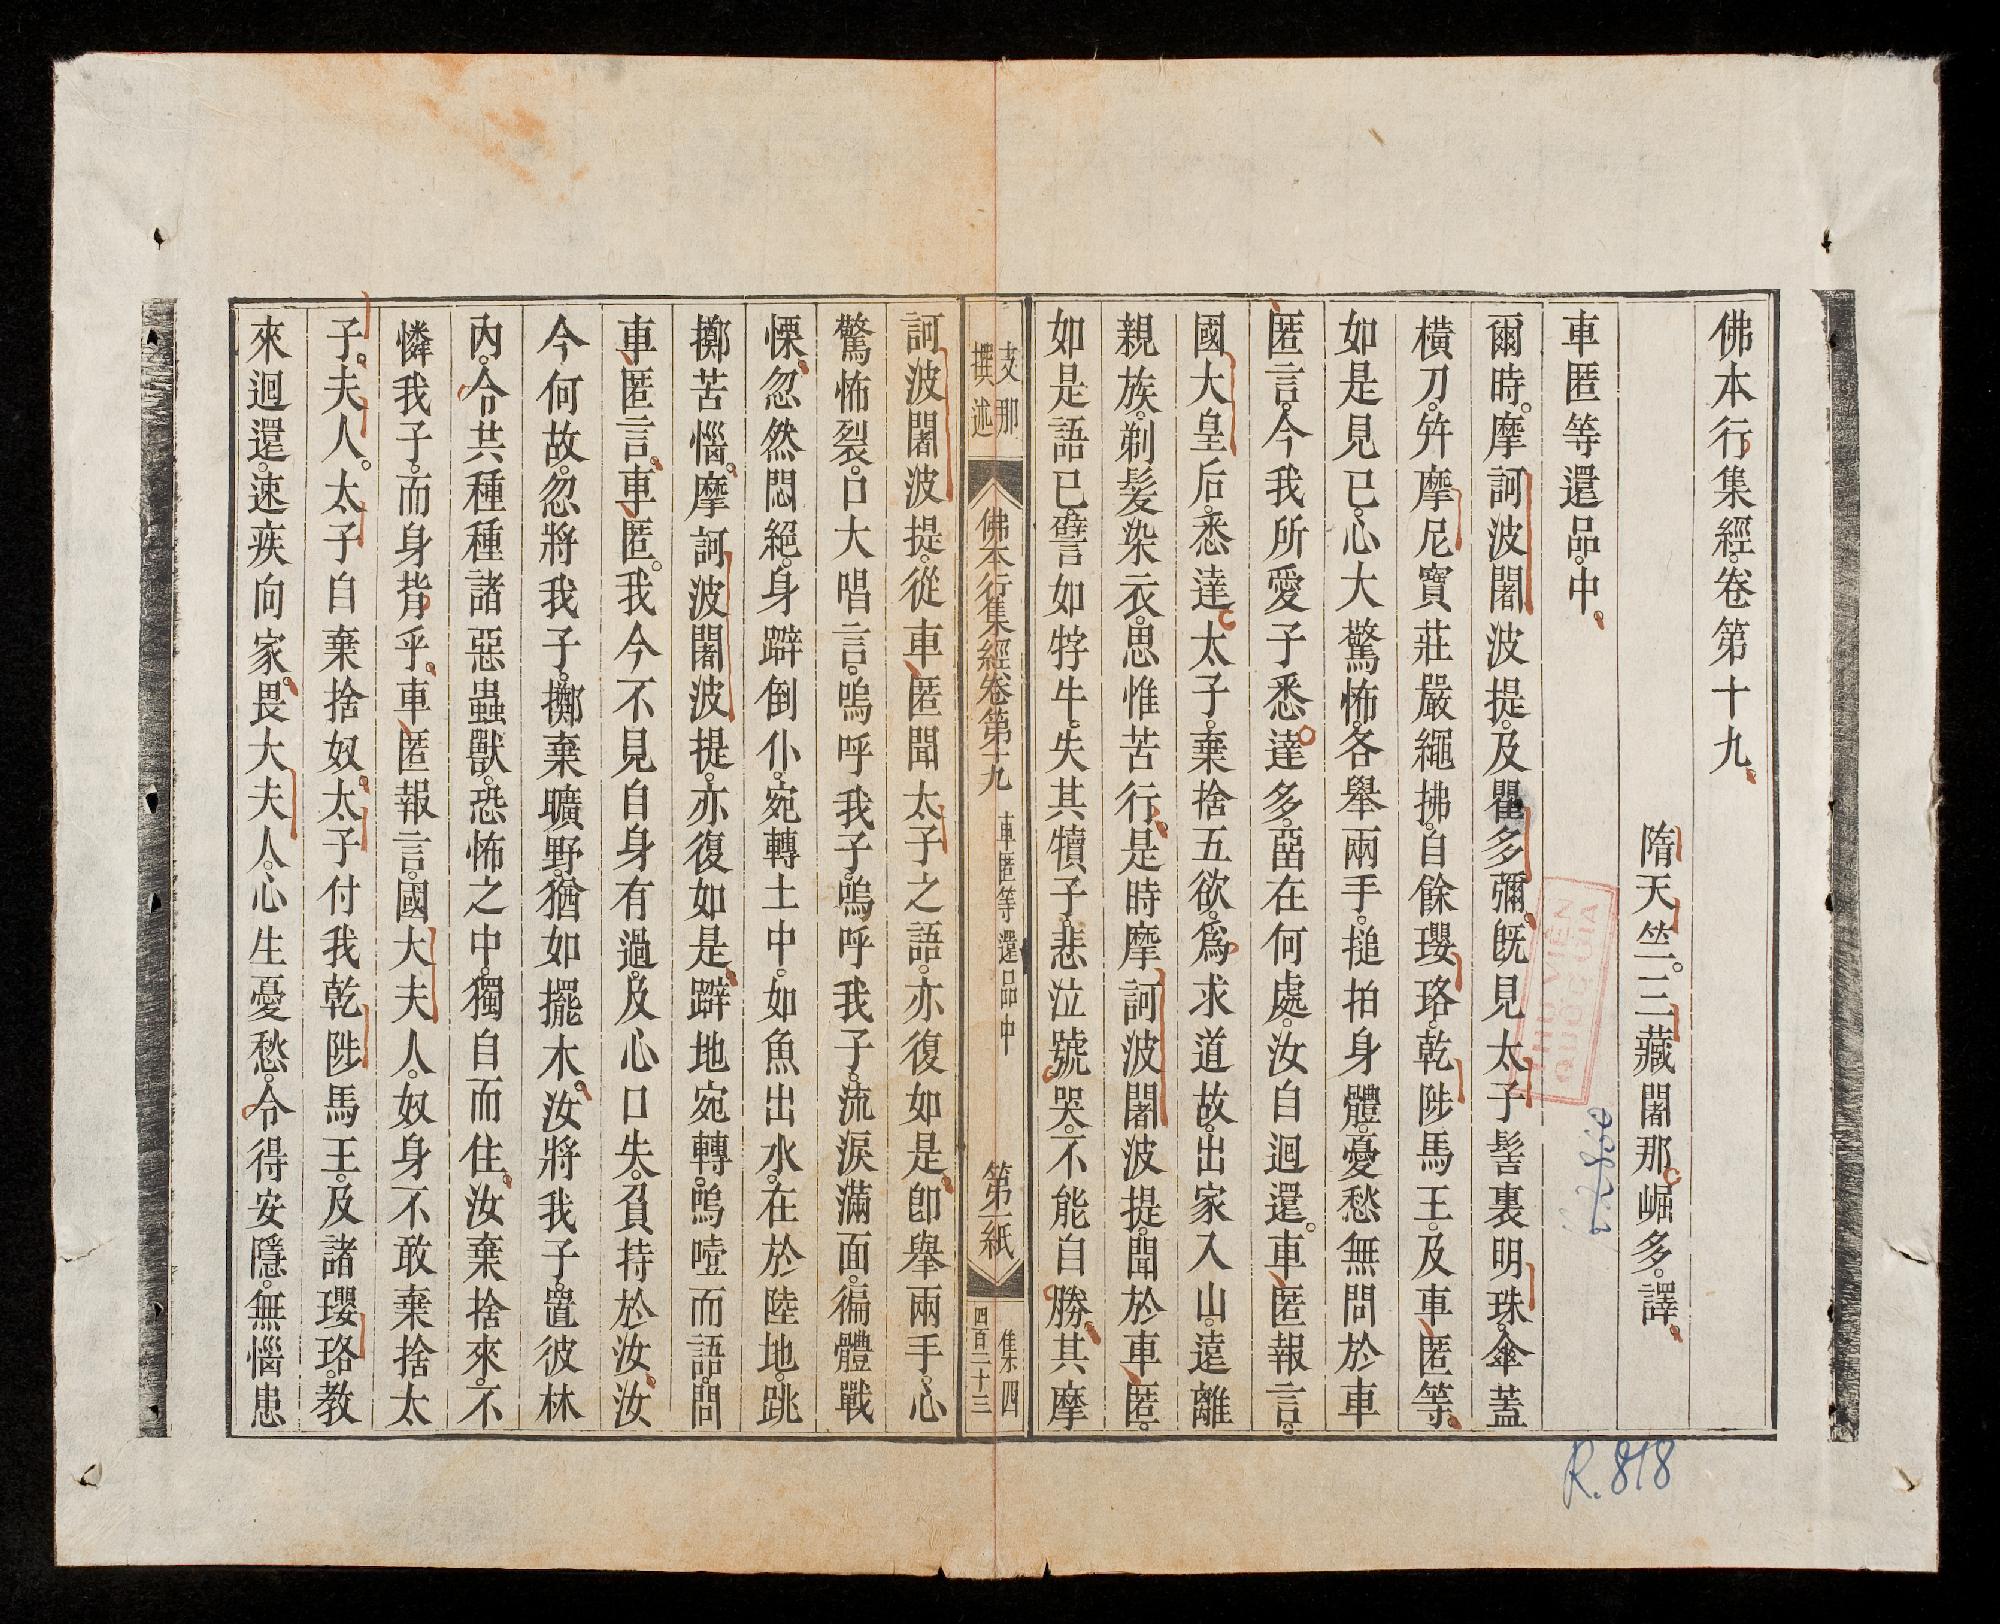 佛本行集經。卷第十九。
隋天竺。三藏闍那崛多。譯。
車匿等還品。中。
爾時。摩訶波闍波提。及瞿多彌。既見太子髻裏明珠。傘蓋
橫刀。并摩尼寶莊嚴繩拂。自餘瓔珞。乾陟馬王。及車匿等。
如是見已。心大驚怖。各舉兩手。搥拍身體。憂愁無問於車
匿言。今我所愛子悉。達多。畱在何處。汝自迴還。車匿報言。
國大皇后。悉達太子。棄捨五欲。爲求道故。出家入山。遠離
親族。剃髮染衣。思惟苦行。是時摩訶波闍波提。聞於車匿。
如是語已。譬如牸牛。失其犢子。悲泣號哭。不能自勝。其摩
支那
撰述
佛本行集經卷第十九
車匿等還品中
第一紙
集四
四百二十三
訶波闍波提。從車匿聞太子之語。亦復如是。卽舉兩手。心
驚怖裂。口大唱言。嗚呼我子。嗚呼我子。流淚滿面。徧體戰
慄。忽然悶絕。身躃倒仆。宛轉土中。如魚出水。在於陸地。跳
擲苦惱。摩訶波闍波提。亦復如是。躃地宛轉。嗚噎而語。問
車匿言。車匿。我今不見自身有過。及心口失。負持於汝。汝
今何故。忽將我子。擲棄曠野。猶如擺木。汝將我子。置彼林
內。令共種種諸惡蟲獸。恐怖之中。獨自而住。汝棄捨來。不
憐我子。而身背乎。車匿報言。國大夫人。奴身不敢棄捨太
子。夫人。太子自棄捨奴。太子付我乾陟馬王。及諸瓔珞。教
來迴還。速疾向家。畏大夫人。心生憂愁。令得安隱。無惱患
R.818